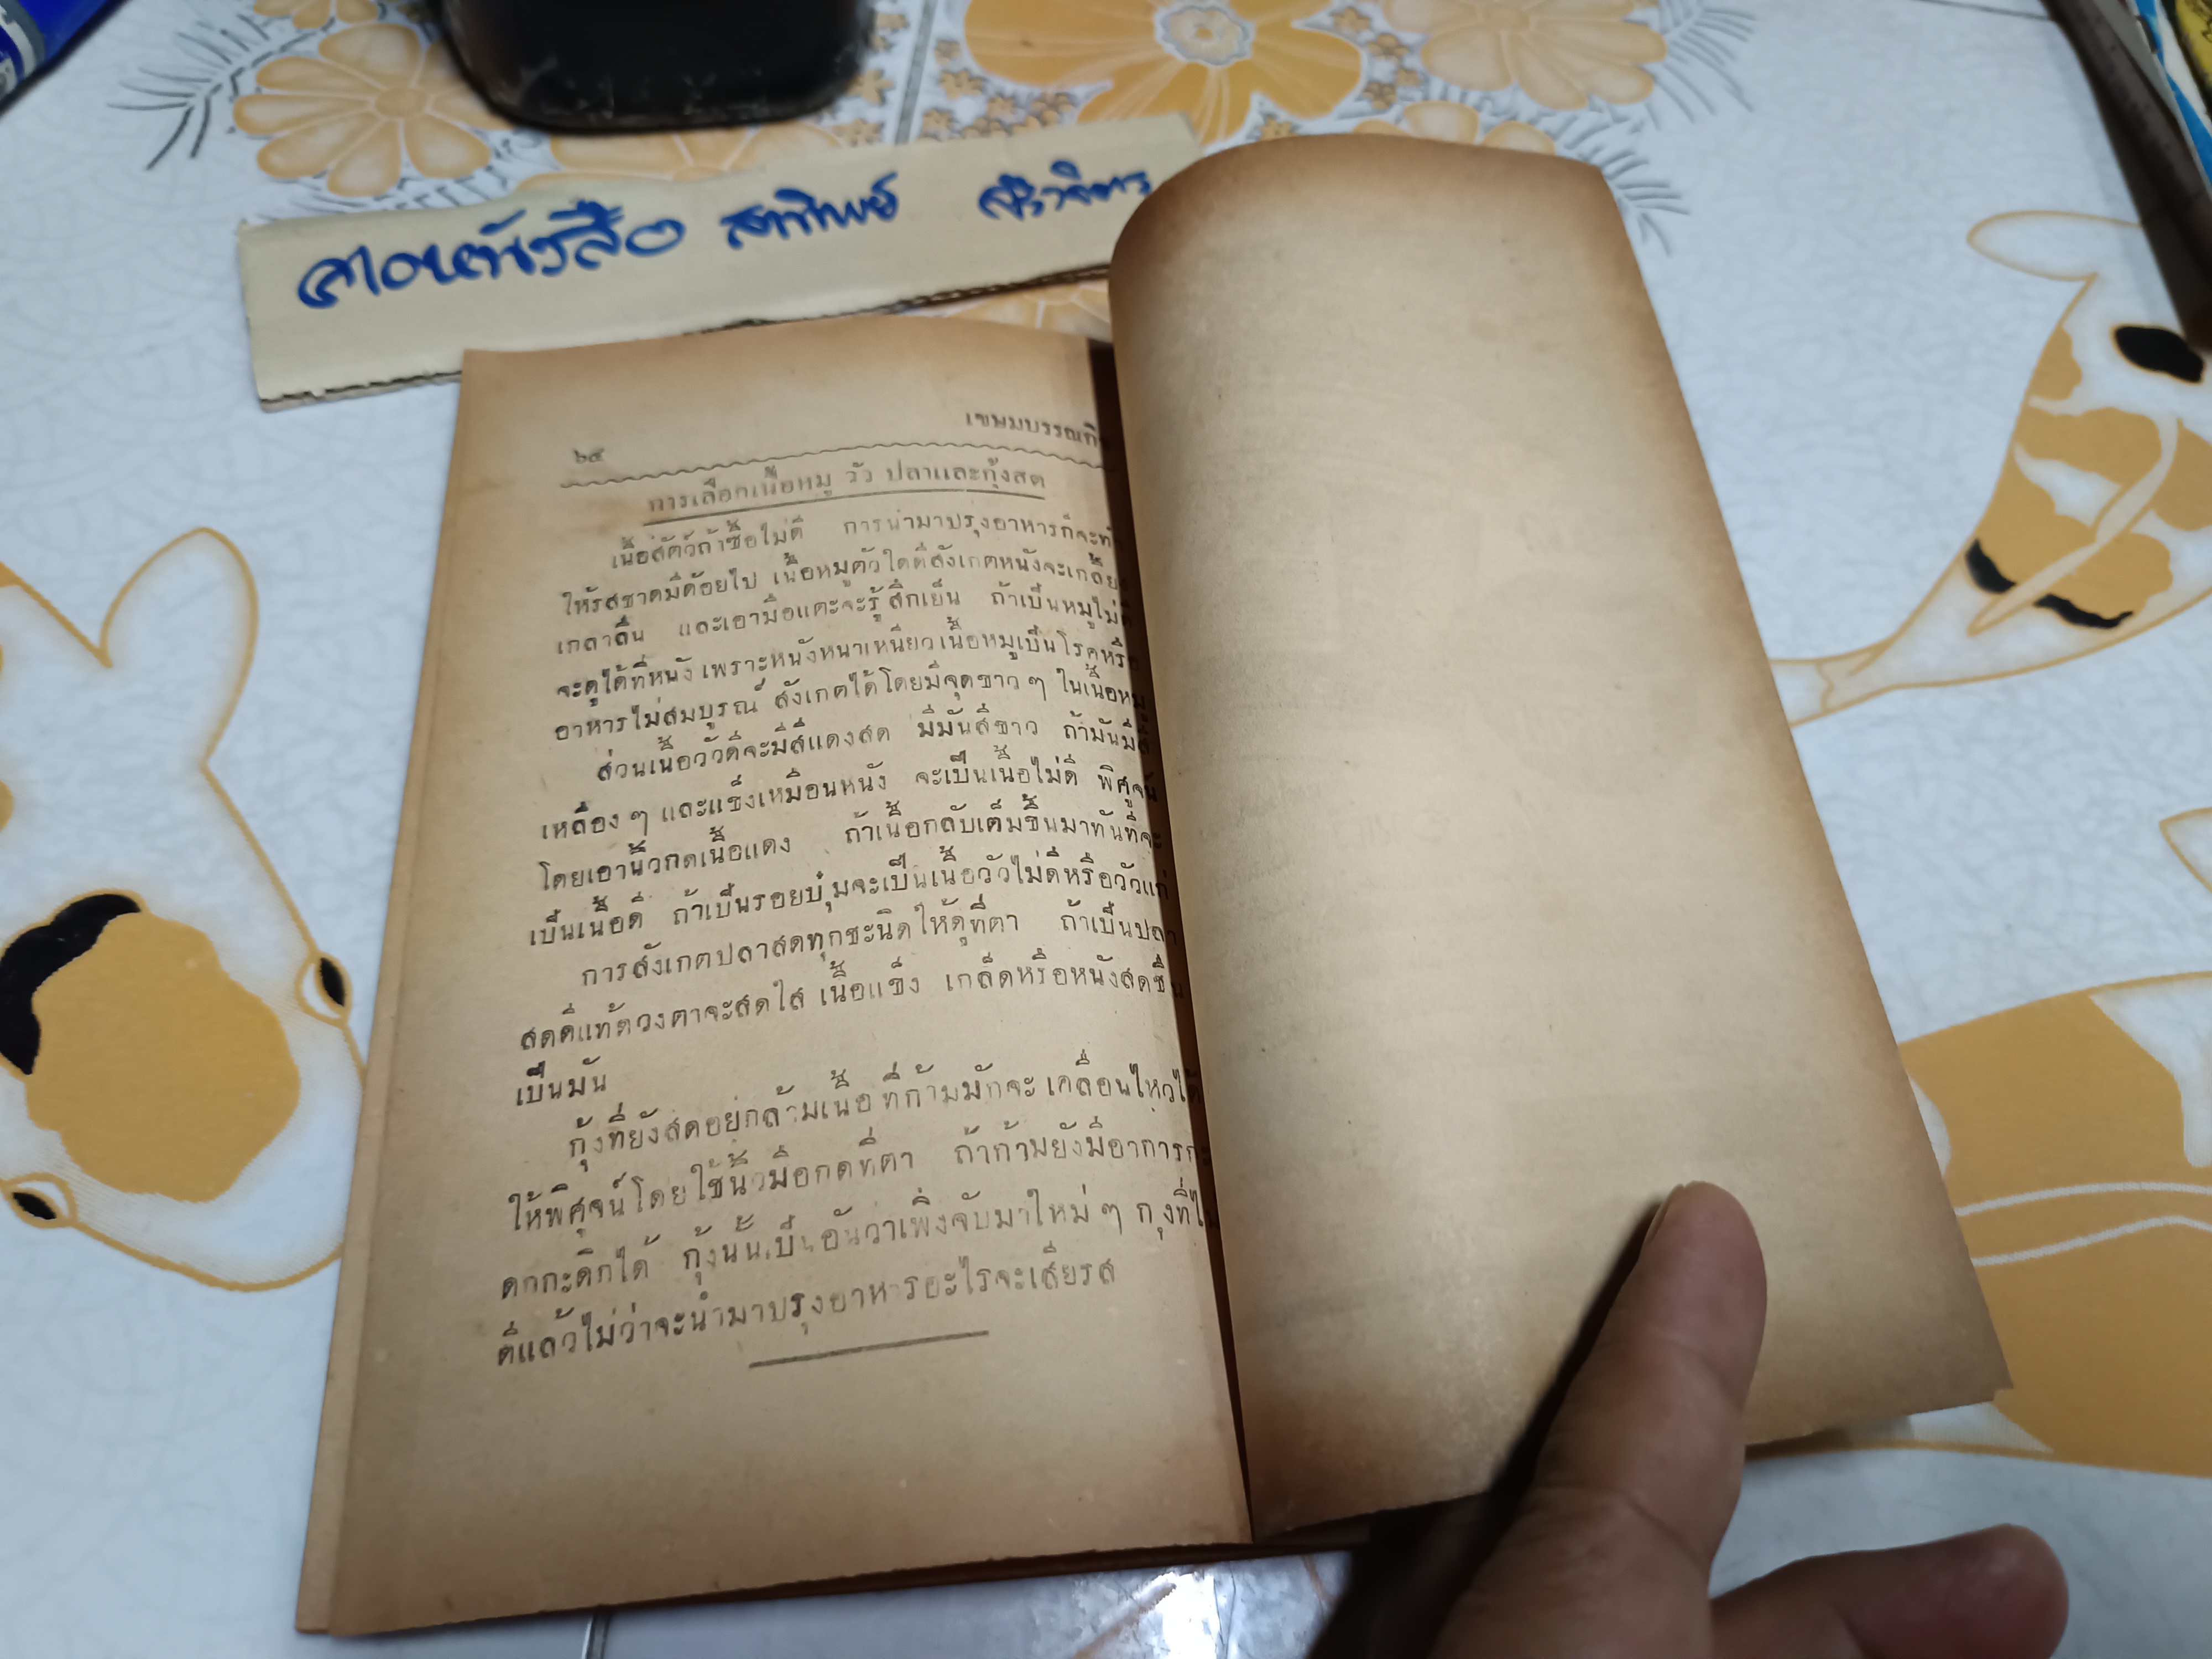 ศาลหนังสือ สุภาทิพย์
๖๕
เขษมบรรณกิจ
การเลือกเนื้อหมู วัว ปลาและกุ้งสด
เนื้อสัตว์ถ้าซื้อไม่ดี การนำมาปรุงอาหารก็จะทำ
ให้รสชาดมีด้อยไป เนื้อหมูตัวใดดีสังเกตหนังจะเกลี้ยง
เกลาลื่น และเอามือแตะจะรู้สึกเย็น ถ้าเป็นหมูไม่ดี
จะดูได้ที่หนัง เพราะหนังหนาเหนียวเนื้อหมูเป็นโรคหรือ
อาหารไม่สมบูรณ์ สังเกตได้โดยมีจุดขาว ๆ ในเนื้อหมู
ส่วนเนื้อวัวดีจะมีสีแดงสด มีมันสีขาว ถ้ามันมีสี
เหลือง ๆ และแข็งเหมือนหนัง จะเป็นเนื้อไม่ดี พิศูจน์
โดยเอานิ้วกดเนื้อแดง ถ้าเนื้อกลับเต็มขึ้นมาทันทีจะ
เป็นเนื้อดี ถ้าเป็นรอยบุ๋มจะเป็นเนื้อวัวไม่ดีหรือวัวแก่
การสังเกตปลาสดทุกชะนิดให้ดูที่ตา ถ้าเป็นปลา
สดดีแท้ดวงตาจะสดใส เนื้อแข็ง เกล็ดหรือหนังสดชื่น
เป็นมัน
กุ้งที่ยังสดอยู่กล้ามเนื้อที่ก้ามมักจะเคลื่อนไหวได้
ให้พิศูจน์โดยใช้นิ้วมือกดที่ตา ถ้าก้ามยังมีอาการกะ
ดกกะดิกได้ กุ้งนั้นเป็นอันว่าเพิ่งจับมาใหม่ ๆ กุงที่ไม่
ดีแล้วไม่ว่าจะนำมาปรุงอาหารอะไรจะเสียรส